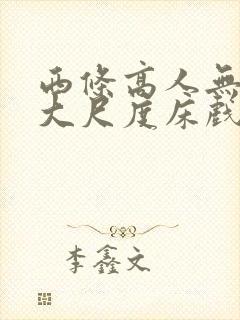 两條高人無
大尺度床戲
李鑫文